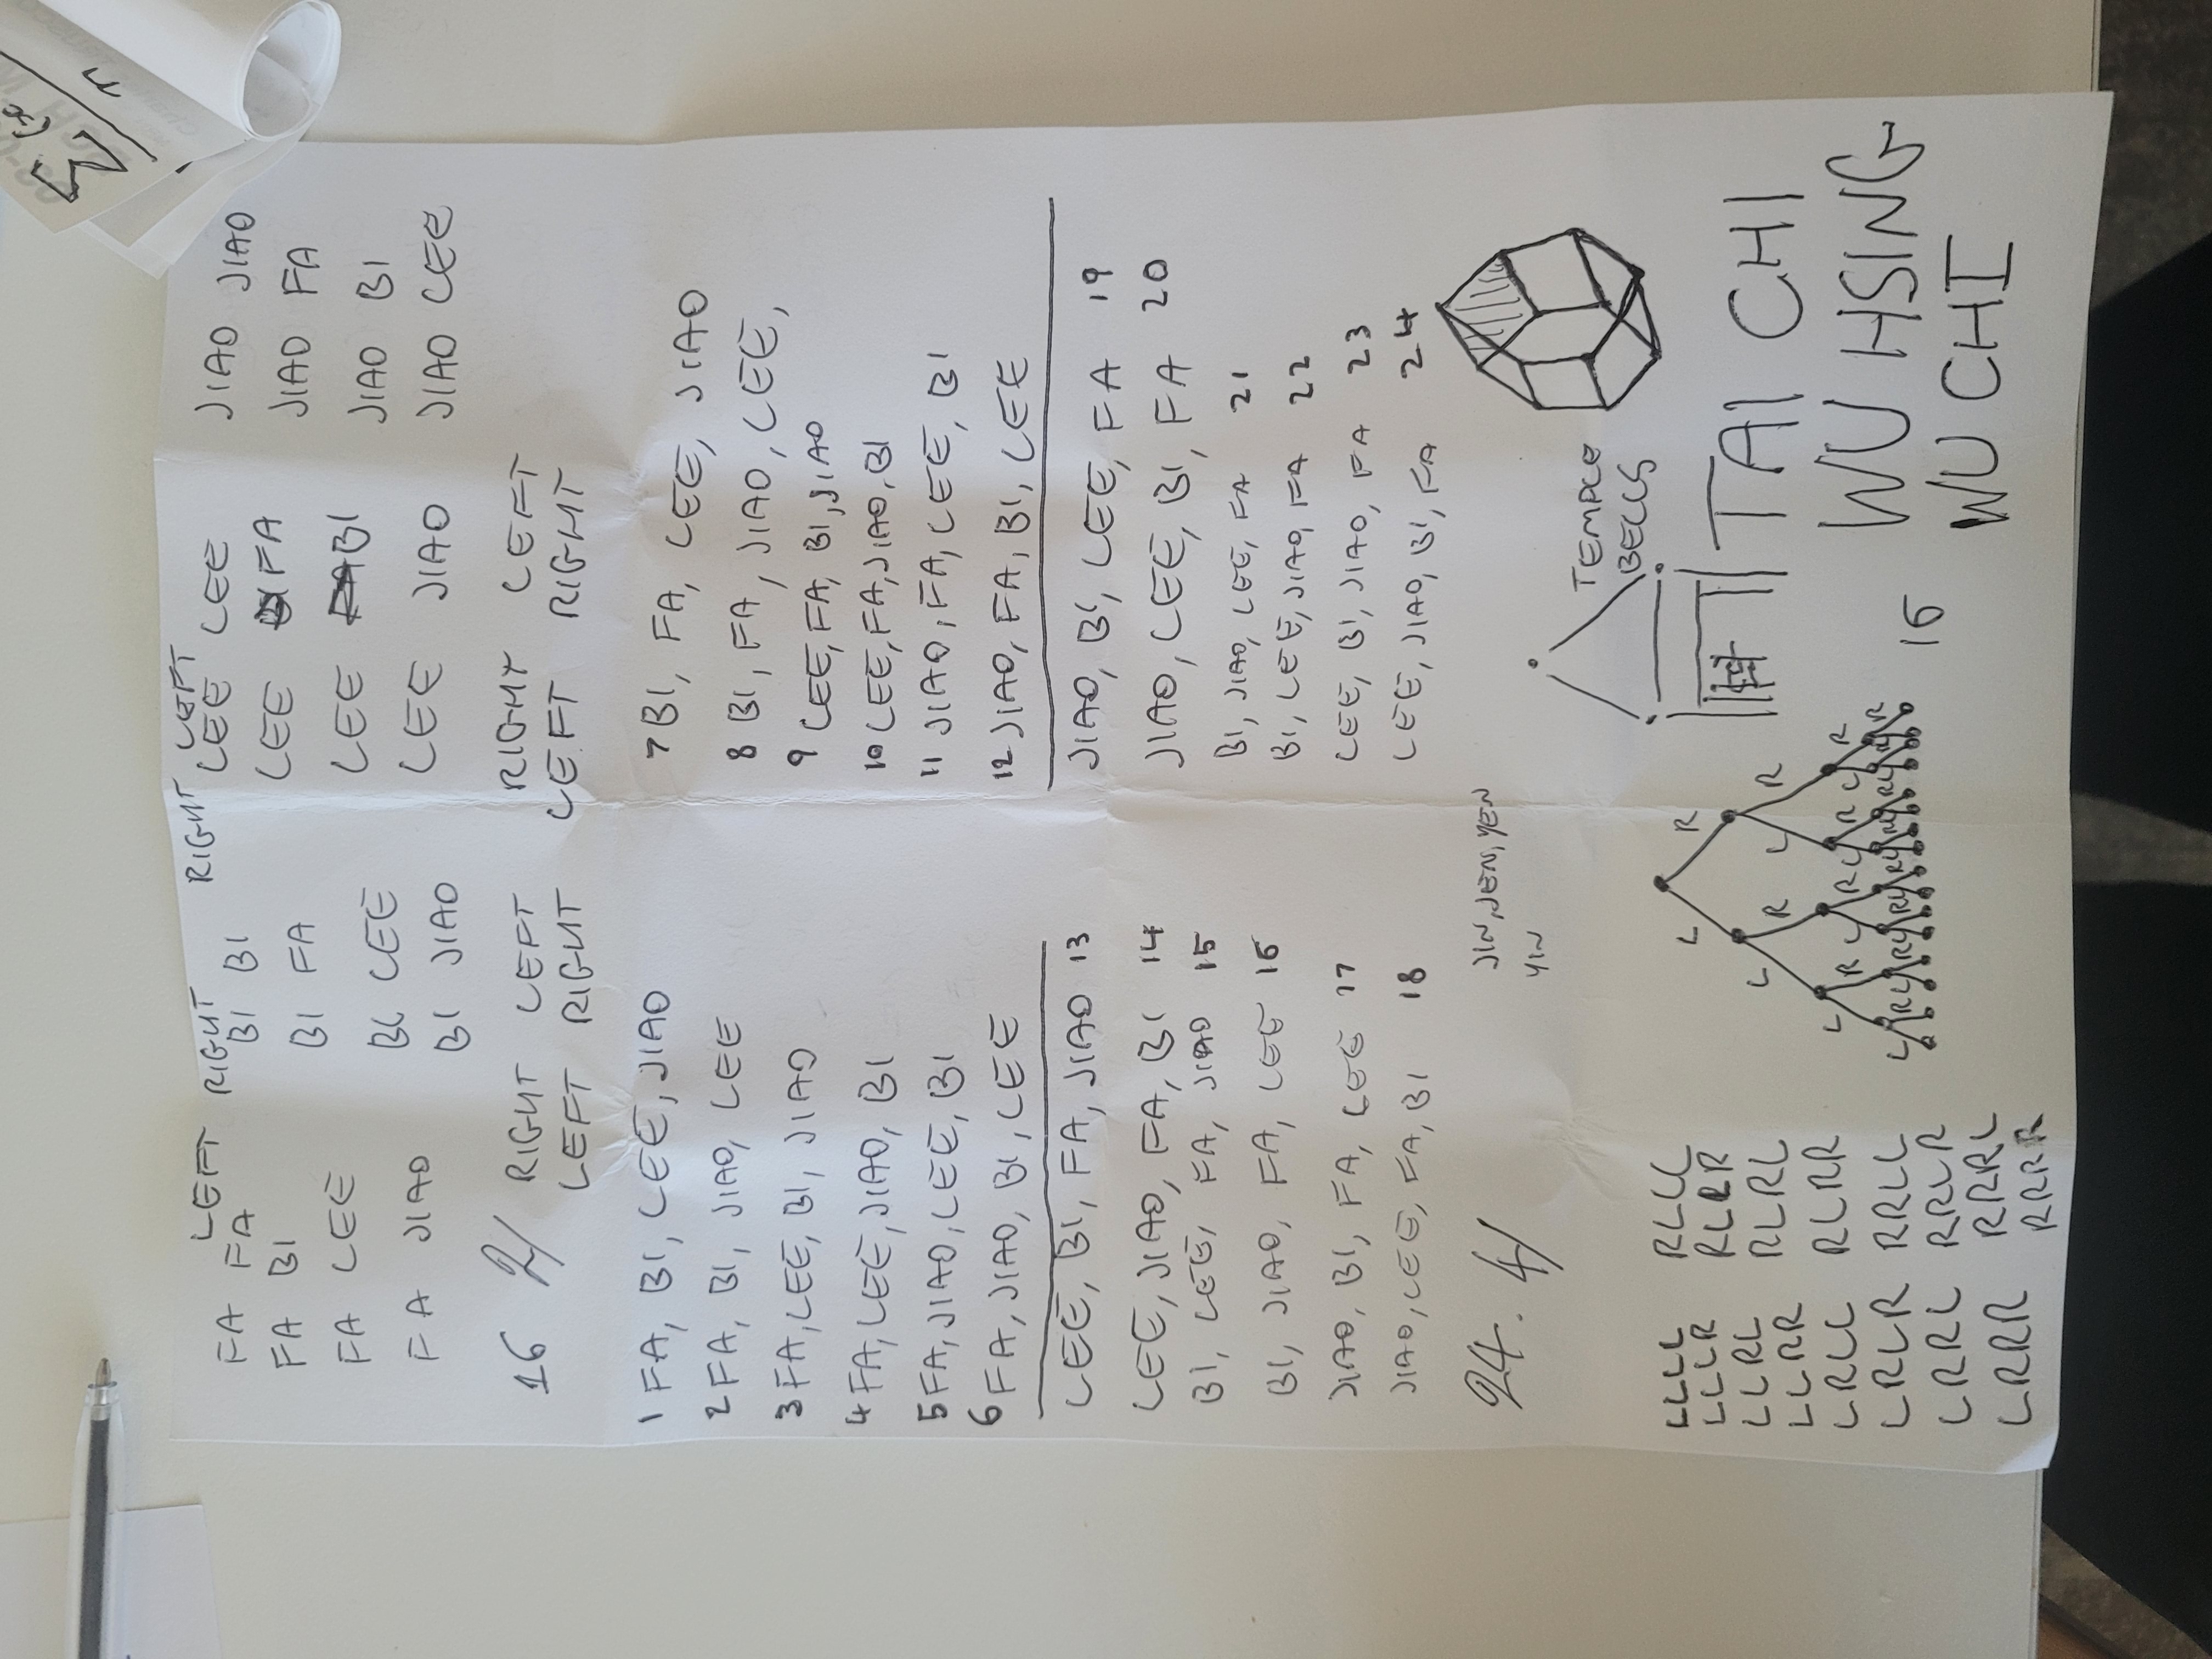 LEFT RIGHT RIGHT LEFT
FA FA BI BI LEE LEE JIAO JIAO
FA BI BI FA LEE FA JIAO FA
FA LEE BI LEE LEE BI JIAO BI
FA JIAO BI JIAO LEE JIAO JIAO LEE
16 2/ RIGHT LEFT RIGHT LEFT
LEFT RIGHT LEFT RIGHT
1 FA, BI, LEE, JIAO
2 FA, BI, JIAO, LEE
3 FA, LEE, BI, JIAO
4 FA, LEE, JIAO, BI
5 FA, JIAO, LEE, BI
6 FA, JIAO, BI, LEE
7 BI, FA, LEE, JIAO
8 BI, FA, JIAO, LEE,
9 LEE, FA, BI, JIAO
10 LEE, FA, JIAO, BI
11 JIAO, FA, LEE, BI
12 JIAO, FA, BI, LEE
LEE, BI, FA, JIAO 13
LEE, JIAO, FA, BI 14
BI, LEE, FA, JIAO 15
BI, JIAO, FA, LEE 16
JIAO, BI, FA, LEE 17
JIAO, LEE, FA, BI 18
JIAO, BI, LEE, FA 19
JIAO, LEE, BI, FA 20
BI, JIAO, LEE, FA 21
BI, LEE, JIAO, FA 22
LEE, BI, JIAO, FA 23
LEE, JIAO, BI, FA 24
24. 4/
JIN, JEN, YEN
YIN
TEMPLE
BELLS
LLLL RLLL
LLLR RLLR
LLRL RLRL
LLRR RLRR
LRLL RRLL
LRLR RRLR
LRRL RRRL
LRRR RRRR
L R
L R L R
L R L R L R L R
L R L R L R L R L R L R L R
16
TAI CHI
WU HSING
WU CHI
Σ (x
n